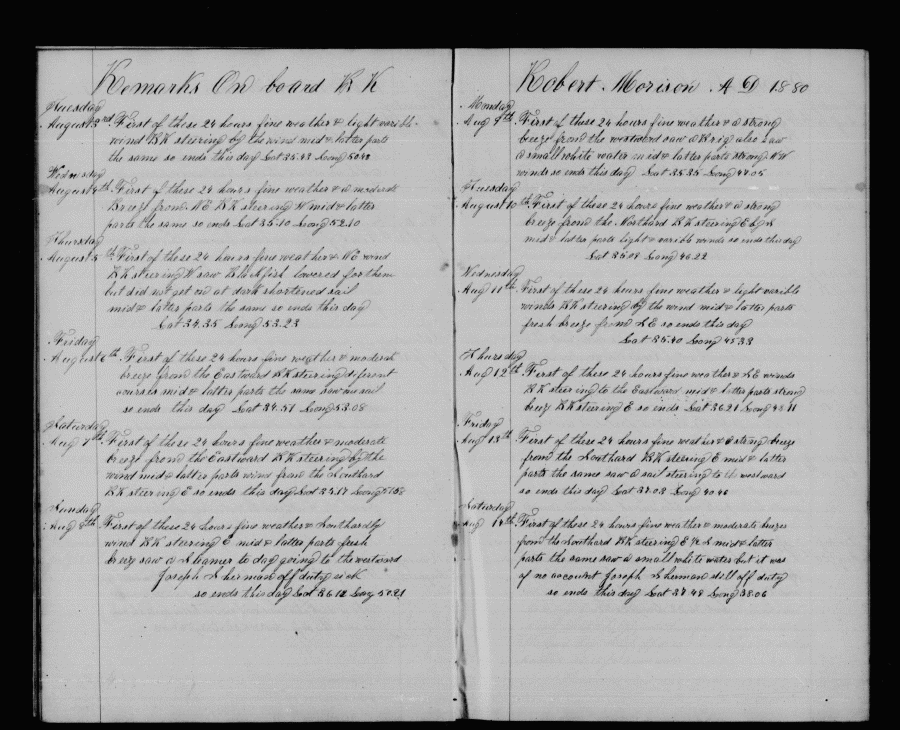 Remarks On board BK
Tuesday
August 3rd First of these 24 hours fine weather & light varible
wind BK steering by the wind mid & latter parts
the same so ends this day Lat 35.43 Long 50.40
Wednesday
August 4th First of these 24 hours fine weather & a moderate
Breeze from NE BK steering W mid & latter
parts the same so ends Lat 35.10 Long 52.10
Thursday
August 5th First of these 24 hours fine weather & NE wind
BK steering W saw Blackfish lowered for them
but did not get no at dark shortened sail
mid & latter parts the same so ends this day
Lat 34.35 Long 53.23
Friday
August 6th First of these 24 hours fine weather & moderate
breeze from the Eastward BK steering diferent
courses mid & latter parts the same saw no sail
so ends this day Lat 34.51 Long 53.08
Saturday
Aug 7th First of these 24 hours fine weather & moderate
breeze from the Eastward BK steering by the
wind mid & latter parts wind from the Southard
BK steering E so ends this day Lat 35.17 Long 51.58
Sunday
Aug 8th First of these 24 hours fine weather & Southardly
wind BK steering E mid & latter parts fresh
breeze saw a Steamer to day going to the westward
Joseph Sherman off duty sick
so ends this day Lat 36.12 Long 50.21
Robert Morison AD 1880
Monday
Aug 9th First of these 24 hours fine weather & a strong
breeze from the westward saw a Brig also saw
a small white water mid & latter parts strong NW
winds so ends this day Lat 35.35 Long 47.05
Tuesday
August 10th First of these 24 hours fine weather & a strong
breeze from the Northard BK steering E by S
mid & latter parts light & varible winds so ends this day
Lat 35.08 Long 46.22
Wednesday
Aug 11th First of these 24 hours fine weather & light varible
winds BK steering by the wind mid & latter parts
fresh breeze from SE so ends this day
Lat 35.40 Long 45.33
Thursday
Aug 12th First of these 24 hours fine weather & SE winds
BK steering to the Eastward mid & latter parts strong
breeze BK steering E so ends Lat 36.21 Long 43.11
Friday
Aug 13th First of these 24 hours fine weather & strong breeze
from the Southard BK steering E mid & latter
parts the same saw a sail steering to westward
so ends this day Lat 37.03 Long 40.46
Saturday
Aug 14th First of these 24 hours fine weather & moderate breeze
from the Southard BK steering mid & latter
parts the same saw a small white water but it was
of no account Joseph Sherman still off duty
so ends this day Lat 37.48 Long 38.06